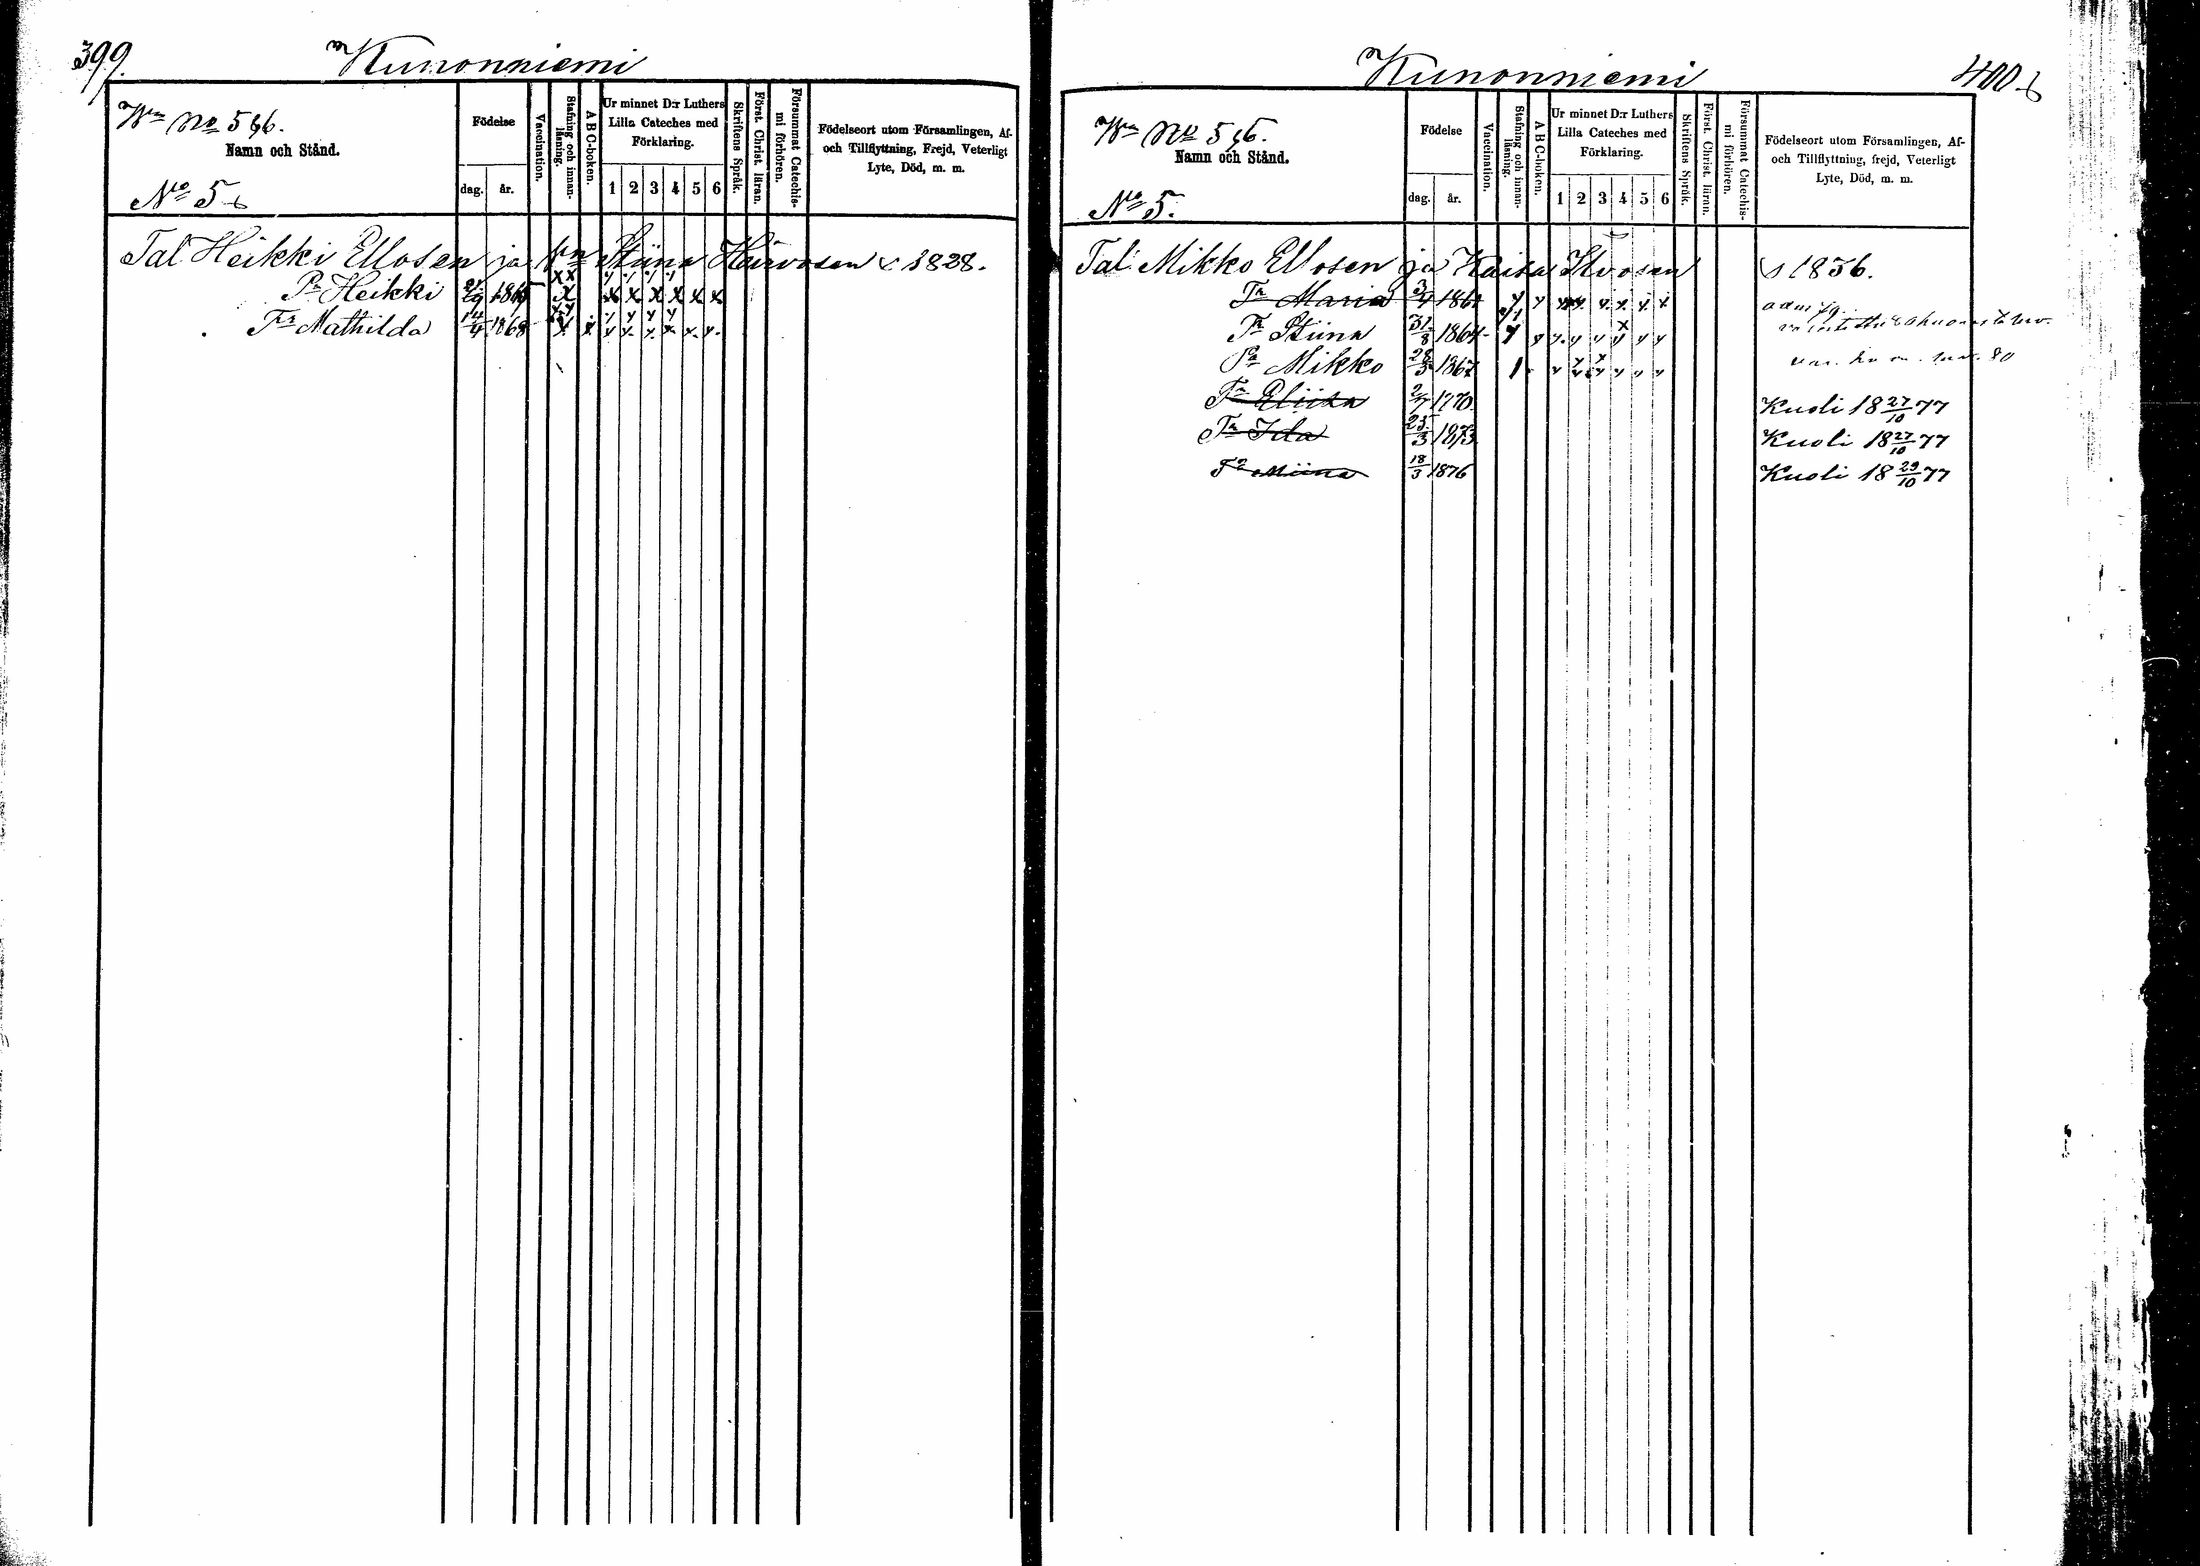 399.
Kunonniemi
Wn No 5,6.
Namn och Stånd.
No 5
Födelse
dag.
år.
Vaccination.
Stafning och innan-
läsning.
A B C-boken.
Ur minnet D:r Luthers
Lilla Cateches med
Förklaring.
1 2 3 4 5 6
Skriftens Språk.
Först. Christ. läran.
Försummat Catechis-
mi förhören.
Födelseort utom Församlingen, Af-
och Tillflyttning, Frejd, Veterligt
Lyte, Död, m. m.
Tal Heikki Ellosen ja Stiina s 1828.
Pa Heikki 1865
Tr Mathilda 14/4 1868
Kunonniemi
400
Wn No 5,6.
Namn och Stånd.
No 5.
Födelse
dag.
år.
Vaccination.
Stafning och innan-
läsning.
A B C-boken.
Ur minnet D:r Luthers
Lilla Cateches med
Förklaring.
1 2 3 4 5 6
Skriftens Språk.
Först. Christ. läran.
Försummat Catechis-
mi förhören.
Födelseort utom Församlingen, Af-
och Tillflyttning, frejd, Veterligt
Lyte, Död, m. m.
Tal Mikko Ellosen ja Kaisa s 1836.
Tr Maria 3/4 1861
Tr Stiina 31/8 1864
Pa Mikko 1867
Tr Eliisa 2/7 1870.
Tr Ida 25/3 1873
Tr Miina 18/3 1876
Kuoli 18 27/10 77
Kuoli 18 27/10 77
Kuoli 18 29/10 77